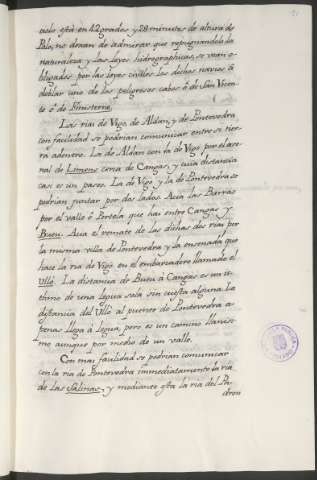 velo esta en 42 grados, y 28 minutos de altura de
Polo, no dexan de admirar que repugnandolo la
naturaleza y las leyes hidrographicas, se vean o-
bligadas por las leyes civiles las dichas naves á
doblar uno de los peligrosos cabos ó de San Vicen-
te ó de Finisterre.
Las rias de Vigo, de Aldan, y de Pontevedra
con facilidad se podrian comunicar entre si tier-
ra adentro. La de Aldan con la de Vigo por el are-
nal de Limens cerca de Cangas, y cuia distancia
casi es un paseo. La de Vigo y la de Pontevedra se
podrian juntar por dos lados. Acia las Barras
por el valle ó Portela que hai entre Cangas y
Bueu. Acia el remate de las dichas dos rias por
la misma villa de Pontevedra y la ensenada que
hace la ria de Vigo en el embarcadero llamado el
Ulló. La distancia de Bueu á Cangas es un ist-
hmo de una legua sola sin cuesta alguna. La
distancia del Ulló al puerto de Pontevedra a-
penas llega á legua, pero es un camino llanisi-
mo aunque por medio de un valle.
Con mas facilidad se podrian comunicar
con la ria de Pontevedra immediatamente la ria
de las Salinas, y mediante esta la ria del Pa-
dron